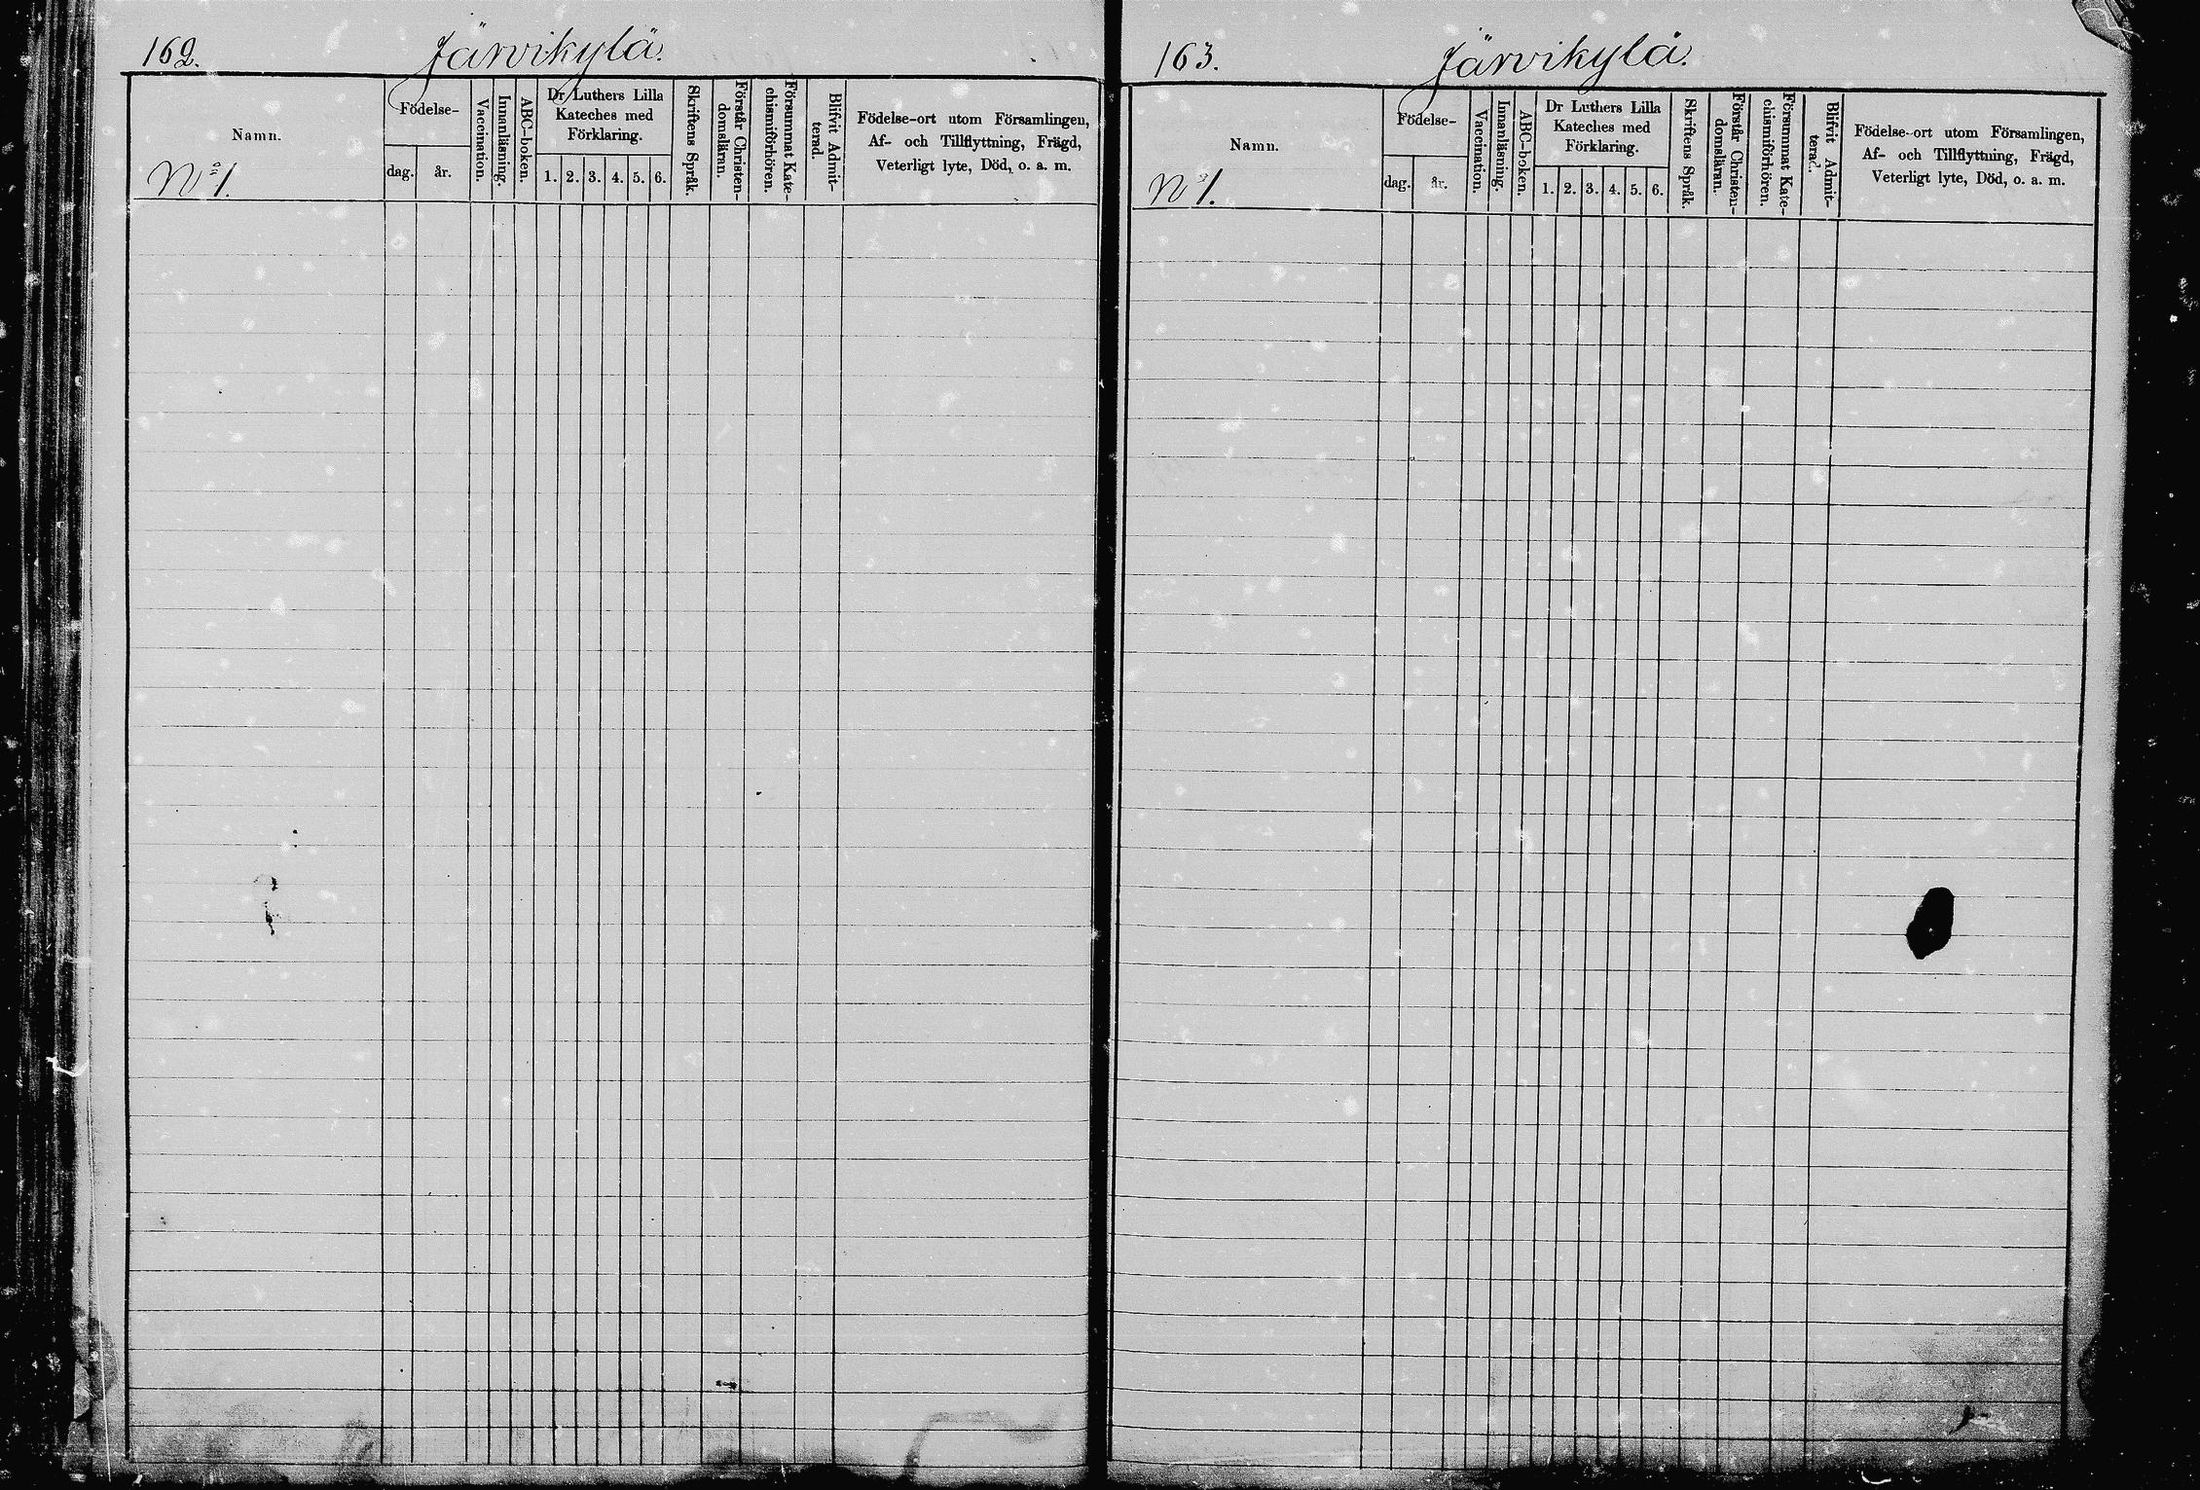 162. Järvikylä.
Namn.
Nº 1.
Födelse-
dag. år.
Vaccination.
Innanläsning.
ABC-boken.
Dr Luthers Lilla
Kateches med
Förklaring.
1. 2. 3. 4. 5. 6.
Skriftens Språk.
Förstår Christen-
domsläran.
Försummat Kate-
chismiförhören.
Blifvit Admit-
terad.
Födelse-ort utom Församlingen,
Af- och Tillflyttning, Frägd,
Veterligt lyte, Död, o. a. m.
163. Järvikylä.
Namn.
Nº 1.
Födelse-
dag. år.
Vaccination.
Innanläsning.
ABC-boken.
Dr Luthers Lilla
Kateches med
Förklaring.
1. 2. 3. 4. 5. 6.
Skriftens Språk.
Förstår Christen-
domsläran.
Försummat Kate-
chismiförhören.
Blifvit Admit-
terad.
Födelse-ort utom Församlingen,
Af- och Tillflyttning, Frägd,
Veterligt lyte, Död, o. a. m.